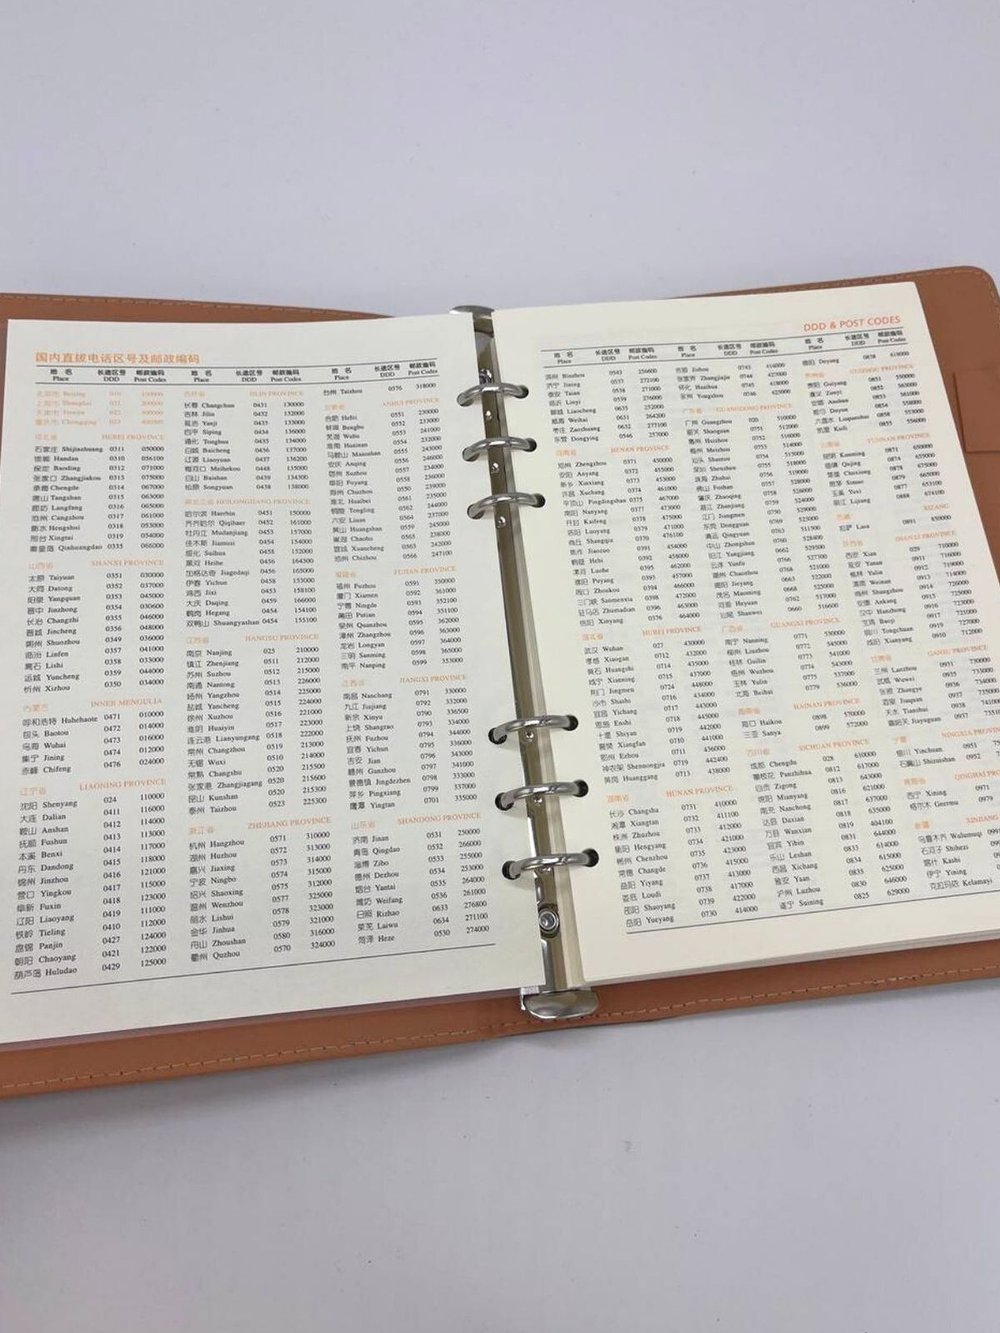 国内直拨电话区号及邮政编码
地 名 Place 长途区号 DDD 邮政编码 Post Codes
河北省 HEBEI PROVINCE
石家庄 Shijiazhuang 0311 050000
邯郸 Handan 0310 056100
保定 Baoding 0312 071000
张家口 Zhangjiakou 0313 075000
承德 Chengde 0314 067000
唐山 Tangshan 0315 063000
廊坊 Langfang 0316 065000
沧州 Cangzhou 0317 061000
衡水 Hengshui 0318 053000
邢台 Xingtai 0319 054000
秦皇岛 Qinhuangdao 0335 066000
山西省 SHANXI PROVINCE
太原 Taiyuan 0351 030000
大同 Datong 0352 037000
阳泉 Yangquan 0353 045000
晋中 Jinzhong 0354 030600
长治 Changzhi 0355 046000
晋城 Jincheng 0356 048000
朔州 Shuozhou 0349 036000
临汾 Linfen 0357 041000
离石 Lishi 0358 033000
运城 Yuncheng 0359 044000
忻州 Xizhou 0350 034000
内蒙古 INNER MENGULIA
呼和浩特 Huhehaote 0471 010000
包头 Baotou 0472 014000
乌海 Wuhai 0473 016000
集宁 Jining 0474 012000
赤峰 Chifeng 0476 024000
辽宁省 LIAONING PROVINCE
沈阳 Shenyang 024 110000
大连 Dalian 0411 116000
鞍山 Anshan 0412 114000
抚顺 Fushun 0413 113000
本溪 Benxi 0414 117000
丹东 Dandong 0415 118000
锦州 Jinzhou 0416 121000
营口 Yingkou 0417 115000
阜新 Fuxin 0418 123000
辽阳 Liaoyang 0419 111000
铁岭 Tieling 0410 112000
盘锦 Panjin 0427 124000
朝阳 Chaoyang 0421 122000
葫芦岛 Huludao 0429 125000
吉林省 JILIN PROVINCE
长春 Changchun 0431 130000
吉林 Jilin 0432 132000
延吉 Yanji 0433 133000
四平 Siping 0434 136000
通化 Tonghua 0435 134000
白城 Baicheng 0436 137000
辽源 Liaoyuan 0437 136200
梅河口 Meihekou 0448 135000
白山 Baishan 0439 134300
松原 Songyuan 0438 138000
黑龙江省 HEILONGJIANG PROVINCE
哈尔滨 Haerbin 0451 150000
齐齐哈尔 Qiqihaer 0452 161000
牡丹江 Mudanjiang 0453 157000
佳木斯 Jiamusi 0454 154000
绥化 Suihua 0458 152000
黑河 Heihe 0456 164300
加格达奇 Jiagedaqi 0456 165000
伊春 Yichun 0458 153000
鸡西 Jixi 0453 158100
大庆 Daqing 0459 166000
鹤岗 Hegang 0454 154100
双鸭山 Shuangyashan 0454 155100
江苏省 JIANGSU PROVINCE
南京 Nanjing 025 210000
镇江 Zhenjiang 0511 212000
苏州 Suzhou 0512 215000
南通 Nantong 0513 226000
扬州 Yangzhou 0514 225000
盐城 Yancheng 0515 224000
徐州 Xuzhou 0516 221000
淮阴 Huaiyin 0517 223000
连云港 Lianyungang 0518 222000
常州 Changzhou 0519 213000
无锡 Wuxi 0510 214000
常熟 Changshu 0520 215500
张家港 Zhangjiagang 0520 215600
昆山 Kunshan 0520 215300
泰州 Taizhou 0523 225300
浙江省 ZHEJIANG PROVINCE
杭州 Hangzhou 0571 310000
湖州 Huzhou 0572 313000
嘉兴 Jiaxing 0573 314000
宁波 Ningbo 0574 315000
绍兴 Shaoxing 0575 312000
温州 Wenzhou 0577 325000
丽水 Lishui 0578 323000
金华 Jinhua 0579 321000
舟山 Zhoushan 0580 316000
衢州 Quzhou 0570 324000
台州 Taizhou 0576 318000
安徽省 ANHUI PROVINCE
合肥 Hefei 0551 230000
蚌埠 Bengbu 0552 233000
芜湖 Wuhu 0553 241000
淮南 Huainan 0554 232000
马鞍山 Maanshan 0555 243000
安庆 Anqing 0556 246000
宿州 Suzhou 0557 234000
阜阳 Fuyang 0558 236000
滁州 Chuzhou 0550 239000
淮北 Huaibei 0561 235000
铜陵 Tongling 0562 244000
六安 Liuan 0564 237000
黄山 Huangshan 0559 245000
巢湖 Chaohu 0565 238000
宣城 Xuancheng 0563 242000
池州 Chizhou 0566 247100
福建省 FUJIAN PROVINCE
福州 Fuzhou 0591 350000
厦门 Xiamen 0592 361000
宁德 Ningde 0593 352100
莆田 Putian 0594 351100
泉州 Quanzhou 0595 362000
漳州 Zhangzhou 0596 363000
龙岩 Longyan 0597 364000
三明 Sanming 0598 365000
南平 Nanping 0599 353000
江西省 JIANGXI PROVINCE
南昌 Nanchang 0791 330000
九江 Jiujiang 0792 332000
新余 Xinyu 0790 336500
上饶 Shangrao 0793 334000
抚州 Fuzhou 0794 344000
宜春 Yichun 0795 336000
吉安 Jian 0796 343000
赣州 Ganzhou 0797 341000
景德镇 Jingdezhen 0798 333000
萍乡 Pingxiang 0799 337000
鹰潭 Yingtan 0701 335000
山东省 SHANDONG PROVINCE
济南 Jinan 0531 250000
青岛 Qingdao 0532 266000
淄博 Zibo 0533 255000
德州 Dezhou 0534 253000
烟台 Yantai 0535 264000
潍坊 Weifang 0536 261000
日照 Rizhao 0633 276800
莱芜 Laiwu 0634 271100
菏泽 Heze 0530 274000
DDD & POST CODES
地 名 Place 长途区号 DDD 邮政编码 Post Codes
滨州 Binzhou 0543 256600
济宁 Jining 0537 272100
泰安 Taian 0538 271000
临沂 Linyi 0539 276000
聊城 Liaocheng 0635 252000
威海 Weihai 0631 264200
枣庄 Zaozhuang 0632 277100
东营 Dongying 0546 257000
河南省 HENAN PROVINCE
郑州 Zhengzhou 0371 450000
安阳 Anyang 0372 455000
新乡 Xinxiang 0373 453000
许昌 Xuchang 0374 461000
平顶山 Pingdingshan 0375 467000
南阳 Nanyang 0377 473000
开封 Kaifeng 0378 475000
洛阳 Luoyang 0379 471000
商丘 Shangqiu
焦作 Jiaozuo 0391
鹤壁 Hebi 0392
濮阳 Puyang 0393 457000
周口 Zhoukou 0394 466000
三门峡 Sanmenxia 0398 472000
驻马店 Zhumadian 0396 463000
信阳 Xinyang 0376 464000
湖北省 HUBEI PROVINCE
武汉 Wuhan 027 430000
孝感 Xiaogan 0712 432000
黄石 Huangshi 0714 435000
咸宁 Xianning 0715 437000
荆门 Jingmen 0724 448000
沙市 Shashi
宜昌 Yichang 0717 443000
恩施 Enshi 0718 445000
十堰 Shiyan 0719 442000
襄樊 Xiangfan 0710 441000
鄂州 Ezhou 0711 436000
神农架 Shennongjia 0719 442400
黄岗 Huanggang 0713 438000
湖南省 HUNAN PROVINCE
长沙 Changsha 0731 410000
湘潭 Xiangtan 0732 411100
株洲 Zhuzhou 0733 412000
衡阳 Hengyang 0734 421000
郴州 Chenzhou 0735 423000
常德 Changde 0736 415000
益阳 Yiyang 0737 413000
娄底 Loudi 0738 417000
邵阳 Shaoyang 0739 422000
岳阳 Yueyang 0730 414000
吉首 Jishou 0743 416000
张家界 Zhangjiajie 0744 427000
怀化 Huaihua 0745 418000
永州 Yongzhou 0746 425000
广东省 GUANGDONG PROVINCE
广州 Guangzhou 020 510000
韶关 Shaoguan 0751 512000
惠州 Huizhou 0752 516000
梅州 Meizhou 0753 514000
汕头 Shantou 0754 515000
深圳 Shenzhen 0755 518000
珠海 Zhuhai 0756 519000
佛山 Foshan 0757 528000
肇庆 Zhaoqing 0758 526000
湛江 Zhanjiang 0759 524000
江门 Jiangmen 0750 529000
东莞 Dongguan 0769 523000
清远 Qingyuan 0763 511500
中山 Zhongshan 0760 528400
阳江 Yangjiang 0662 529500
云浮 Yunfu 0766 527300
潮州 Chaozhou 0768 521000
揭阳 Jieyang 0663 522000
茂名 Maoming 0668 525000
河源 Heyuan 0762 517000
汕尾 Shanwei 0660 516600
广西省 GUANGXI PROVINCE
南宁 Nanning 0771 530000
柳州 Liuzhou 0772 545000
桂林 Guilin 0773 541000
梧州 Wuzhou 0774 543000
玉林 Yulin 0775 537000
北海 Beihai 0779 536000
海南省 HAINAN PROVINCE
海口 Haikou 0898 570000
三亚 Sanya 0899 572000
四川省 SICHUAN PROVINCE
成都 Chengdu 028 610000
攀枝花 Panzhihua 0812 617000
自贡 Zigong 0813 643000
绵阳 Mianyang 0816 621000
南充 Nanchong 0817 637000
达县 Daxian 0818 635000
万县 Wanxian 0819 404100
宜宾 Yibin 0831 644000
乐山 Leshan 0833 614000
西昌 Xichang 0834 615000
雅安 Yaan 0835 625000
泸州 Luzhou 0830 646000
遂宁 Suining 0825 629000
德阳 Deyang 0838 618000
贵州省 GUIZHOU PROVINCE
贵阳 Guiyang 0851 550000
遵义 Zunyi 0852 563000
安顺 Anshun 0853 561000
都匀 Duyun 0854 558000
六盘水 Liupanshui 0858 553000
凯里 Kaili 0855 556000
云南省 YUNNAN PROVINCE
昆明 Kunming 0871 650000
曲靖 Qujing 0874 655000
楚雄 Chuxiong 0878 675000
思茅 Simao 0879 665000
玉溪 Yuxi 0877 653100
丽江 Lijiang 0888 674100
西藏 XIZANG
拉萨 Lasa 0891 850000
陕西省 SHANXI PROVINCE
西安 Xian 029 710000
延安 Yanan 0911 716000
榆林 Yulin 0912 719000
渭南 Weinan 0913 714000
商州 Shangzhou 0914 726000
安康 Ankang 0915 725000
汉中 Hanzhong 0916 723000
宝鸡 Baoji 0917 721000
铜川 Tongchuan 0919 727000
咸阳 Xianyang 0910 712000
甘肃省 GANSU PROVINCE
兰州 Lanzhou 0931 730000
武威 Wuwei 0935 733000
张掖 Zhangye 0936 734000
酒泉 Jiuquan 0937 735000
天水 Tianshui 0938 741000
嘉峪关 Jiayuguan 0937
宁夏 NINGXIA
银川 Yinchuan 0951
石嘴山 Shizuishan 0952
青海省 QINGHAI
西宁 Xining 0971
格尔木 Geermu 0979
新疆 XINJIANG
乌鲁木齐 Wulumuqi
石河子 Shihezi
喀什 Kashi
伊宁 Yining
克拉玛依 Kelamayi